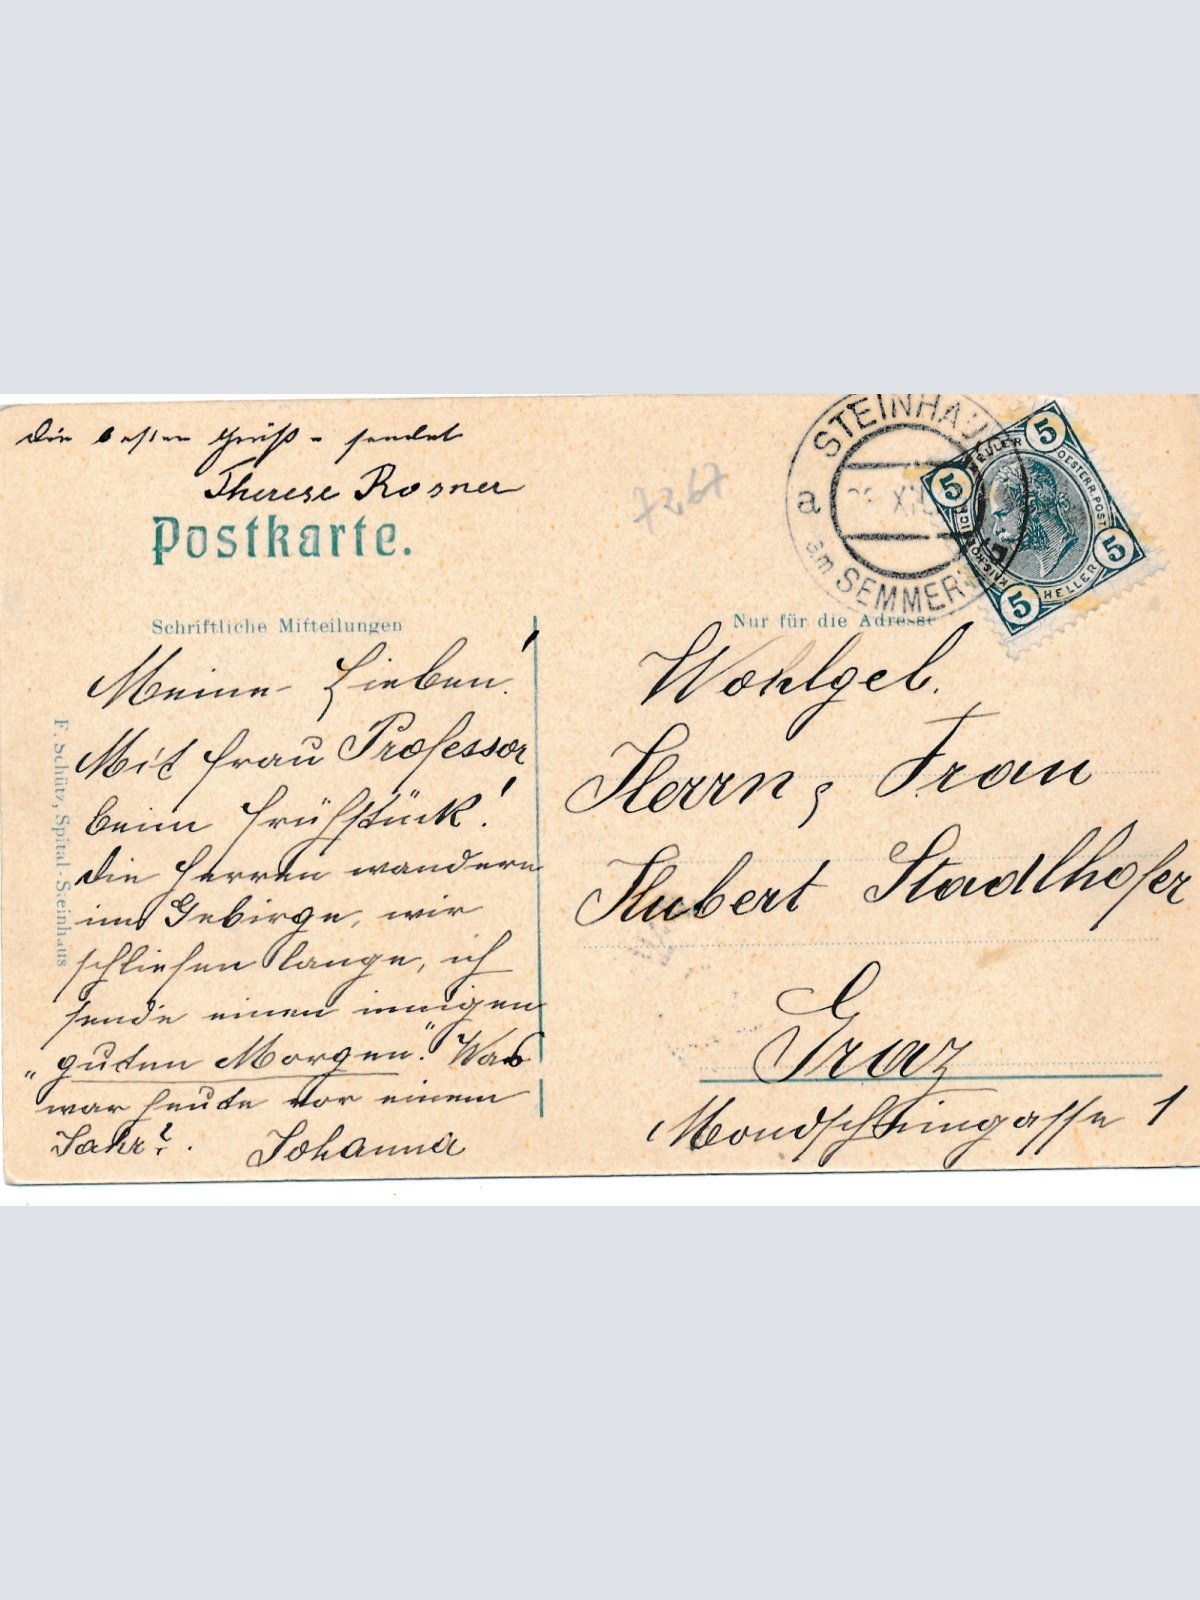 Die besten Grüße sendet
Therese Rosner
Postkarte.
Schriftliche Mitteilungen
Meine Lieben!
Mit Frau Professor
beim Frühstück!
Die Herren wandern
ins Gebirge, wir
schliefen lange, ich
sende einen innigen
„guten Morgen." Was
war heute vor einem
Jahr?. Johanna
F. Schütz, Spital-Steinhaus
7267
STEINHAUS
a
am SEMMERING
XI
5 HELLER 5
OESTERR. POST.
5 HELLER 5
Nur für die Adresse
Wohlgeb.
Herrn, Frau
Hubert Stadlhofer
Graz
Mondscheingasse 1